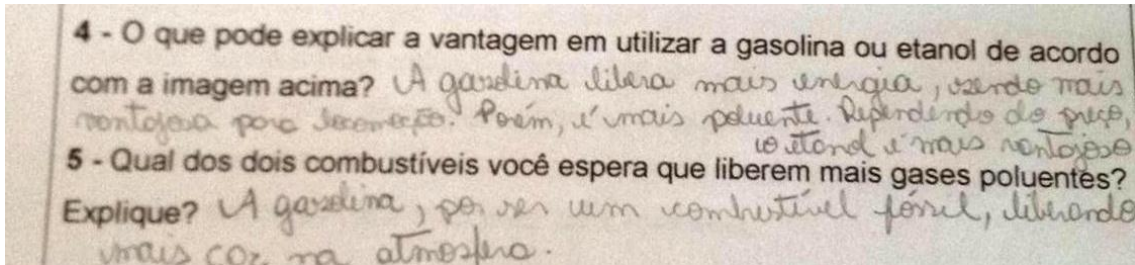 4 - O que pode explicar a vantagem em utilizar a gasolina ou etanol de acordo
com a imagem acima? A gasolina libera mais energia, sendo mais
vantajosa para locomoção. Porém, é mais poluente. Dependendo do preço,
o etanol é mais vantajoso
5 - Qual dos dois combustíveis você espera que liberem mais gases poluentes?
Explique? A gasolina, por ser um combustível fóssil, liberando
mais CO2 na atmosfera.